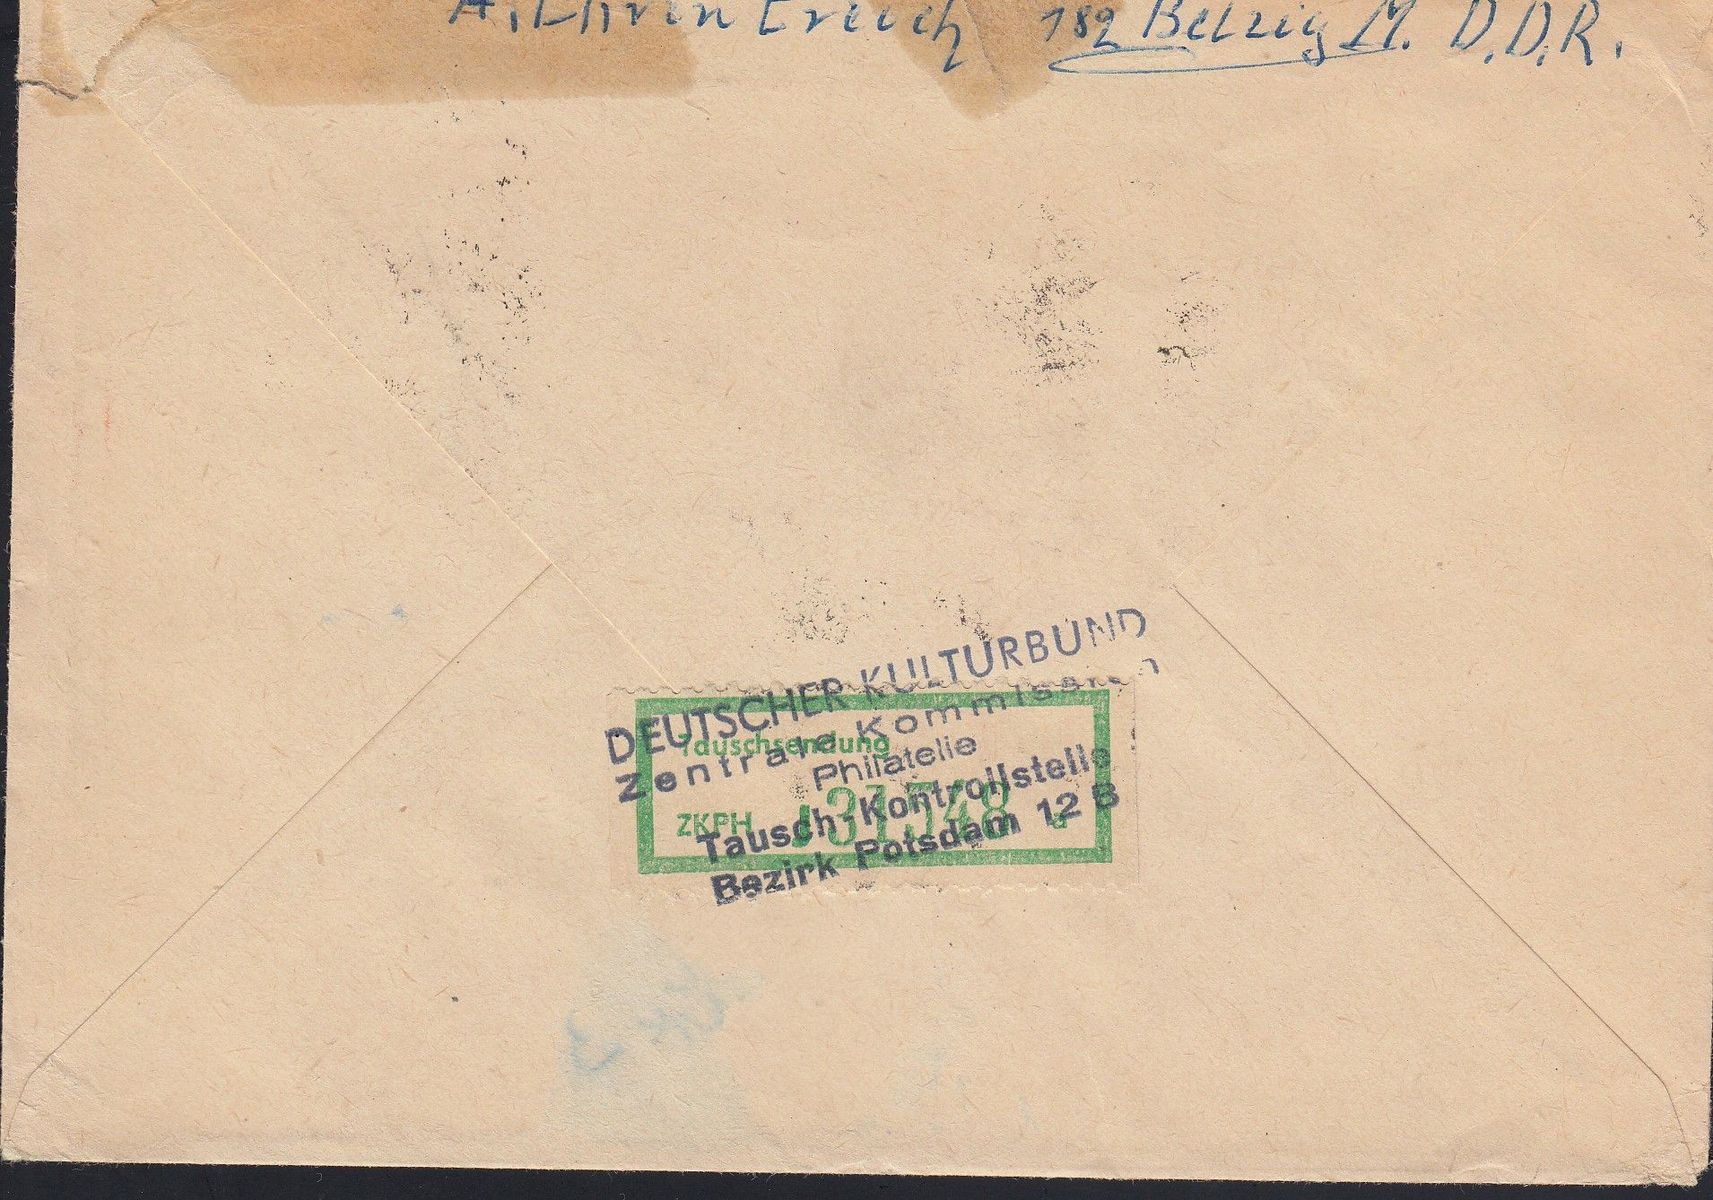 182 Belzig M. D.D.R.
DEUTSCHER KULTURBUND
Zentrale Kommission
Philatelie
Tausch-Kontrollstelle
Bezirk Potsdam 12 B
Tauschsendung
ZKPH